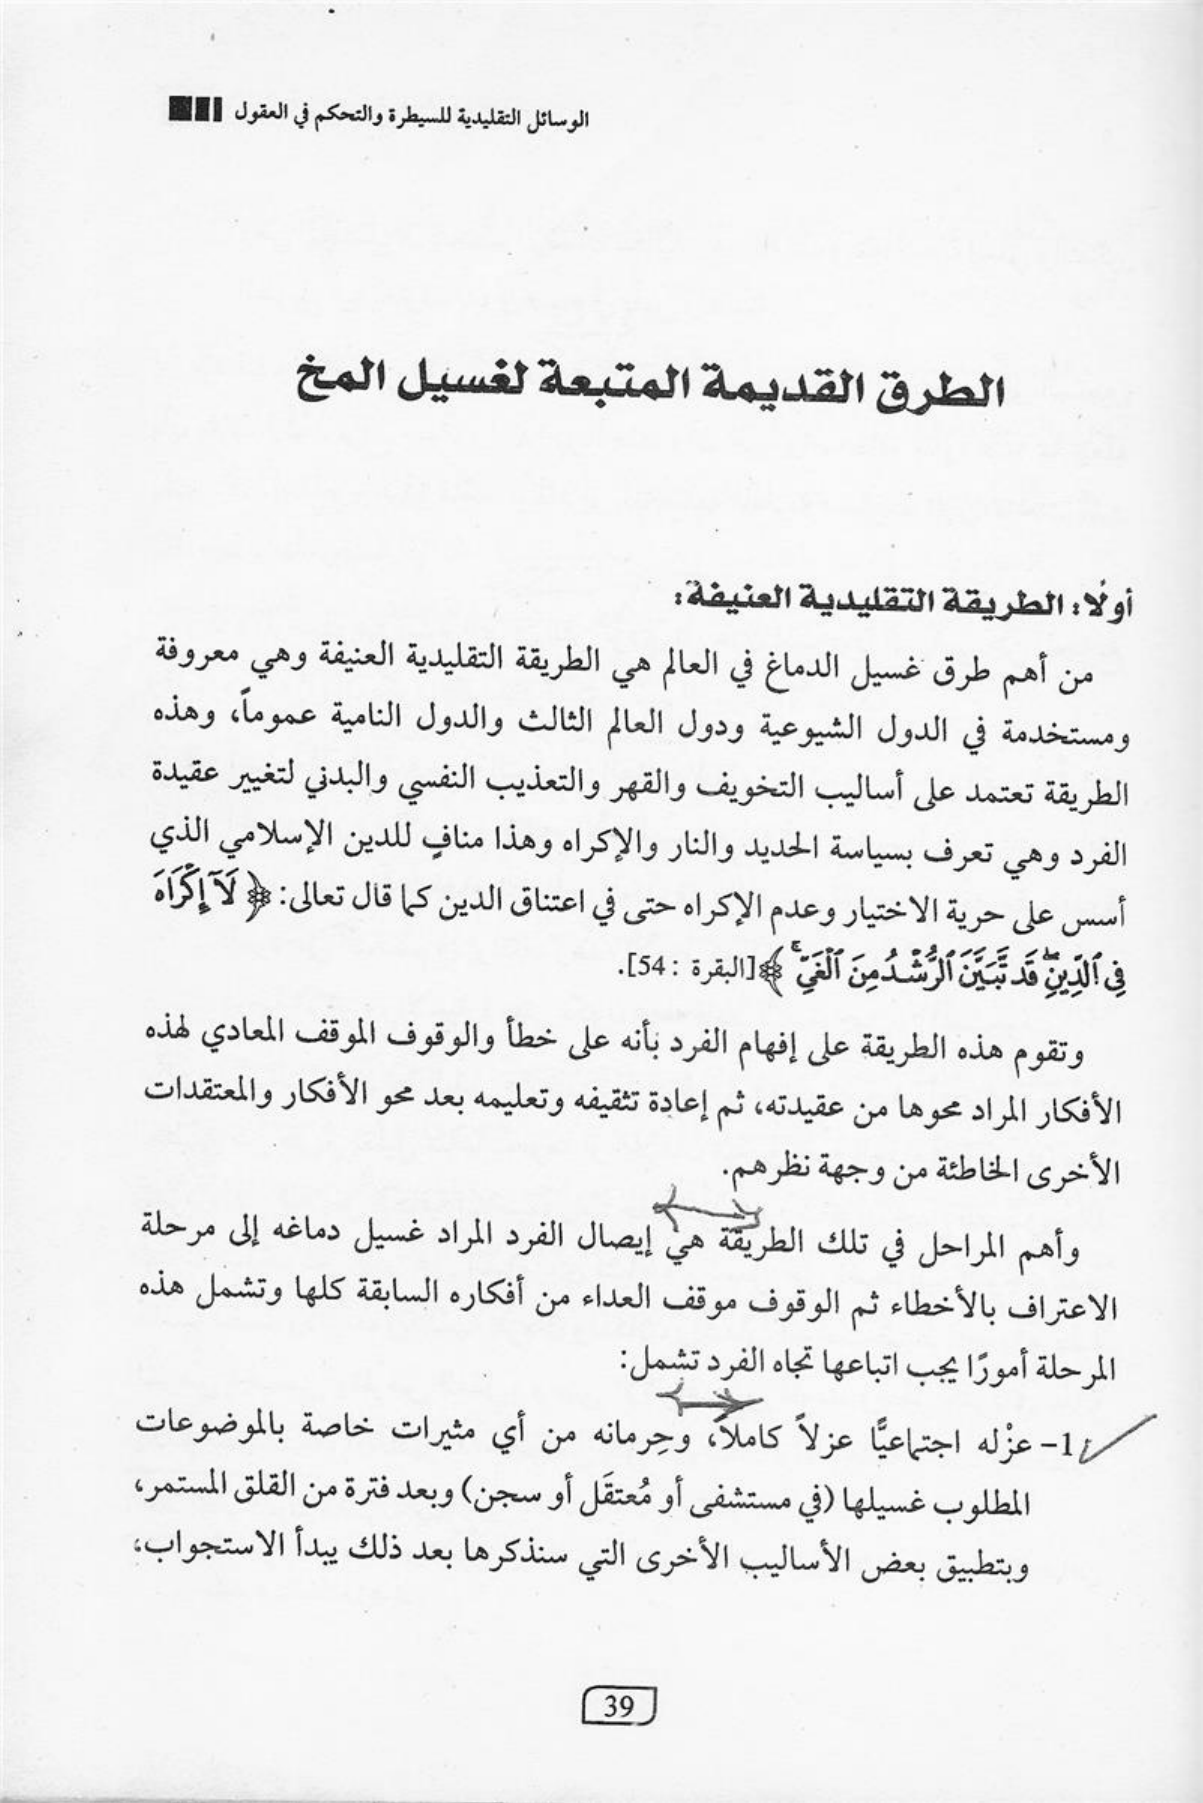 الوسائل التقليدية للسيطرة والتحكم في العقول
الطرق القديمة المتبعة لغسيل المخ
أولًا: الطريقة التقليدية العنيفة:
من أهم طرق غسيل الدماغ في العالم هي الطريقة التقليدية العنيفة وهي معروفة
ومستخدمة في الدول الشيوعية ودول العالم الثالث والدول النامية عموماً، وهذه
الطريقة تعتمد على أساليب التخويف والقهر والتعذيب النفسي والبدني لتغيير عقيدة
الفرد وهي تعرف بسياسة الحديد والنار والإكراه وهذا منافٍ للدين الإسلامي الذي
أسس على حرية الاختيار وعدم الإكراه حتى في اعتناق الدين كما قال تعالى: ﴿ لَآ إِكْرَاهَ
فِي ٱلدِّينِۖ قَد تَّبَيَّنَ ٱلرُّشْدُ مِنَ ٱلْغَيِّۚ ﴾ [البقرة : 54].
وتقوم هذه الطريقة على إفهام الفرد بأنه على خطأ والوقوف الموقف المعادي لهذه
الأفكار المراد محوها من عقيدته، ثم إعادة تثقيفه وتعليمه بعد محو الأفكار والمعتقدات
الأخرى الخاطئة من وجهة نظرهم.
وأهم المراحل في تلك الطريقة هي إيصال الفرد المراد غسيل دماغه إلى مرحلة
الاعتراف بالأخطاء ثم الوقوف موقف العداء من أفكاره السابقة كلها وتشمل هذه
المرحلة أمورًا يجب اتباعها تجاه الفرد تشمل:
1- عزْله اجتماعيًّا عزلاً كاملاً، وحِرمانه من أي مثيرات خاصة بالموضوعات
المطلوب غسيلها (في مستشفى أو مُعتقَل أو سجن) وبعد فترة من القلق المستمر،
وبتطبيق بعض الأساليب الأخرى التي سنذكرها بعد ذلك يبدأ الاستجواب،
39